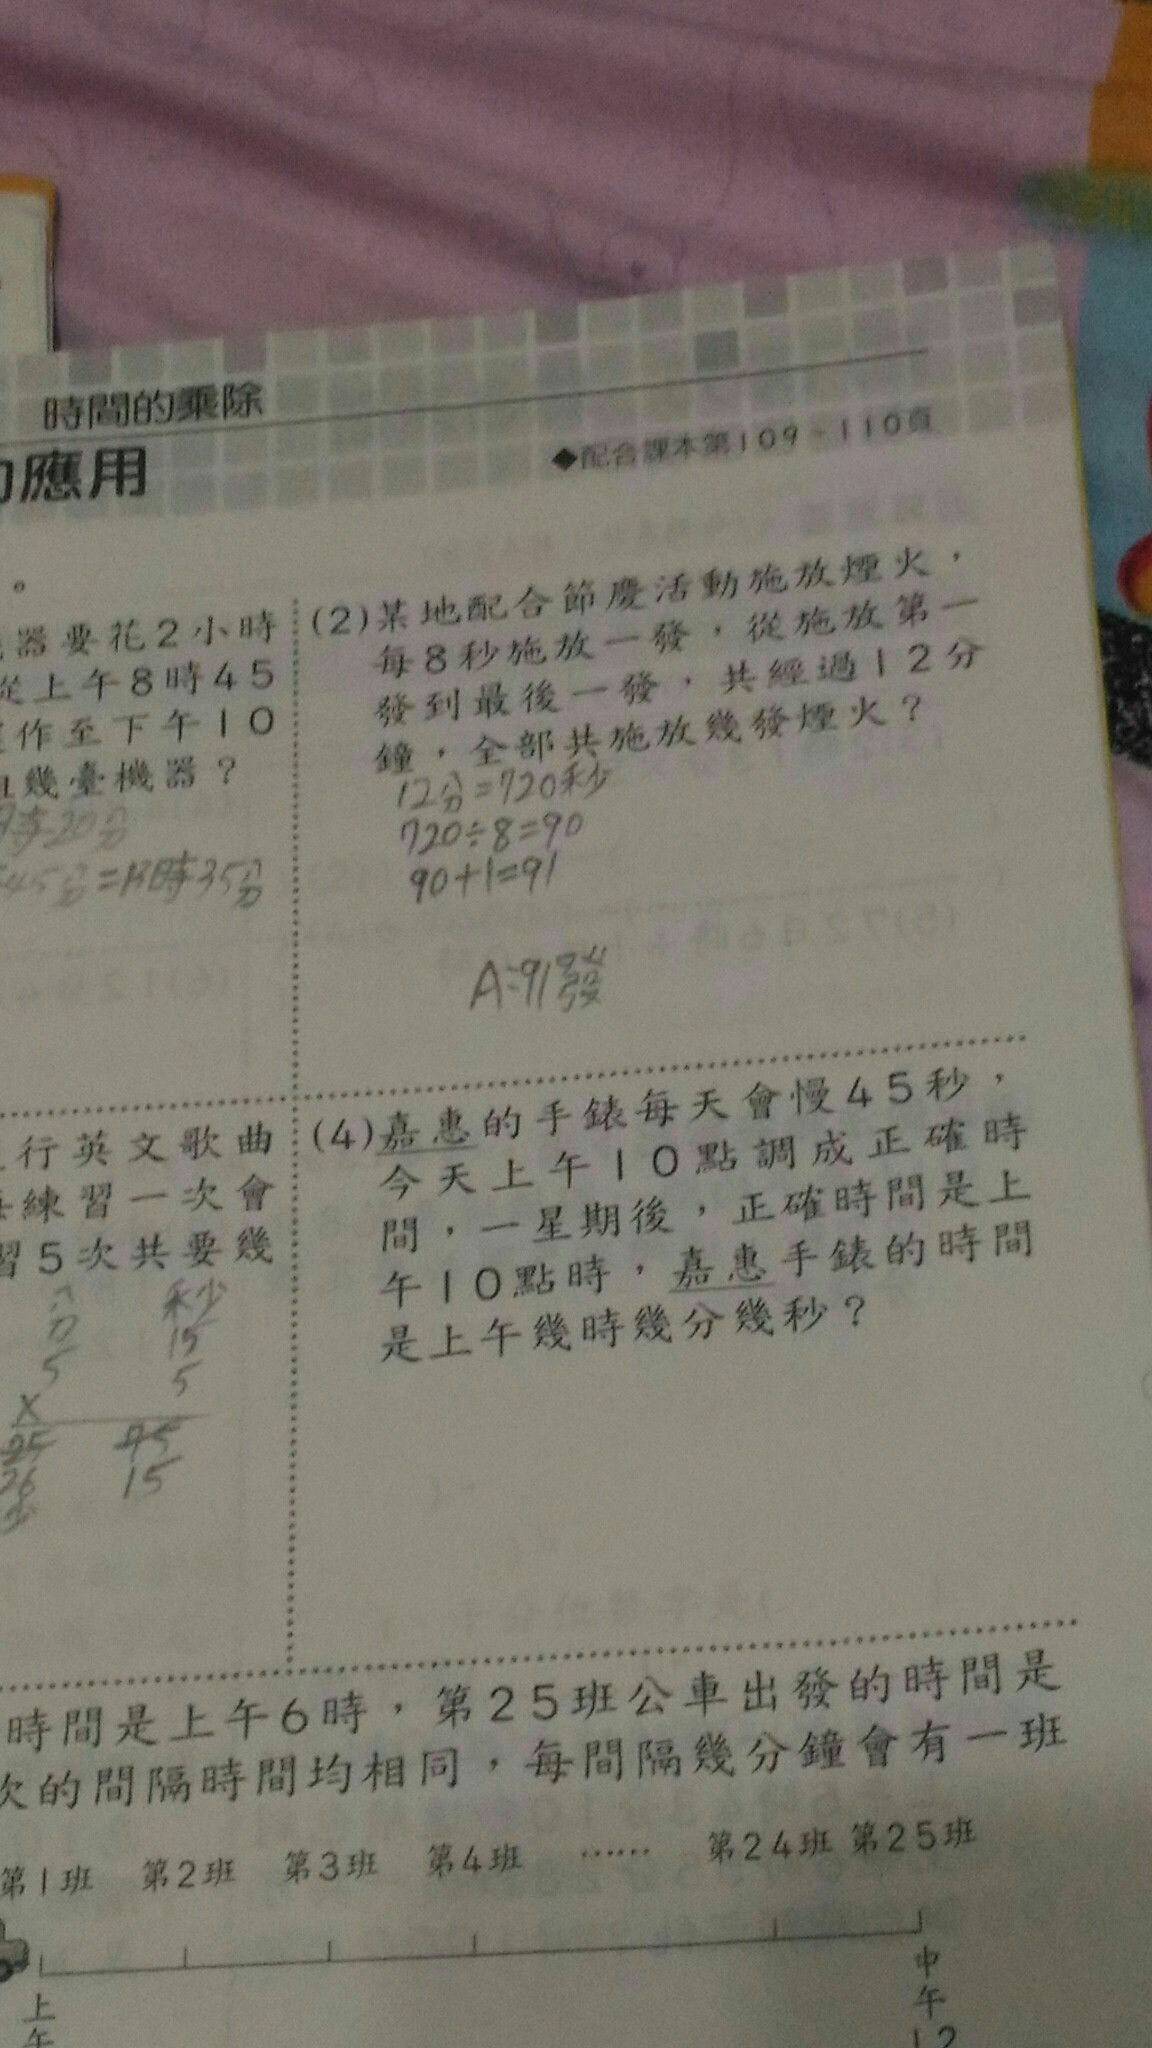 時間的乘除
應用
◆配合課本第109、110頁
。
器要花2小時
從上午8時45
作至下午10
幾臺機器？
時20分
45分=13時35分
(2)某地配合節慶活動施放煙火，
每8秒施放一發，從施放第一
發到最後一發，共經過12分
鐘，全部共施放幾發煙火？
12分=720秒
720÷8=90
90+1=91
A:91發
行英文歌曲
練習一次會
習5次共要幾
分 秒
5 15
× 5
25 75
26 15
(4)嘉惠的手錶每天會慢45秒，
今天上午10點調成正確時
間，一星期後，正確時間是上
午10點時，嘉惠手錶的時間
是上午幾時幾分幾秒？
時間是上午6時，第25班公車出發的時間是
次的間隔時間均相同，每間隔幾分鐘會有一班
第1班 第2班 第3班 第4班 …… 第24班 第25班
上午
中午12